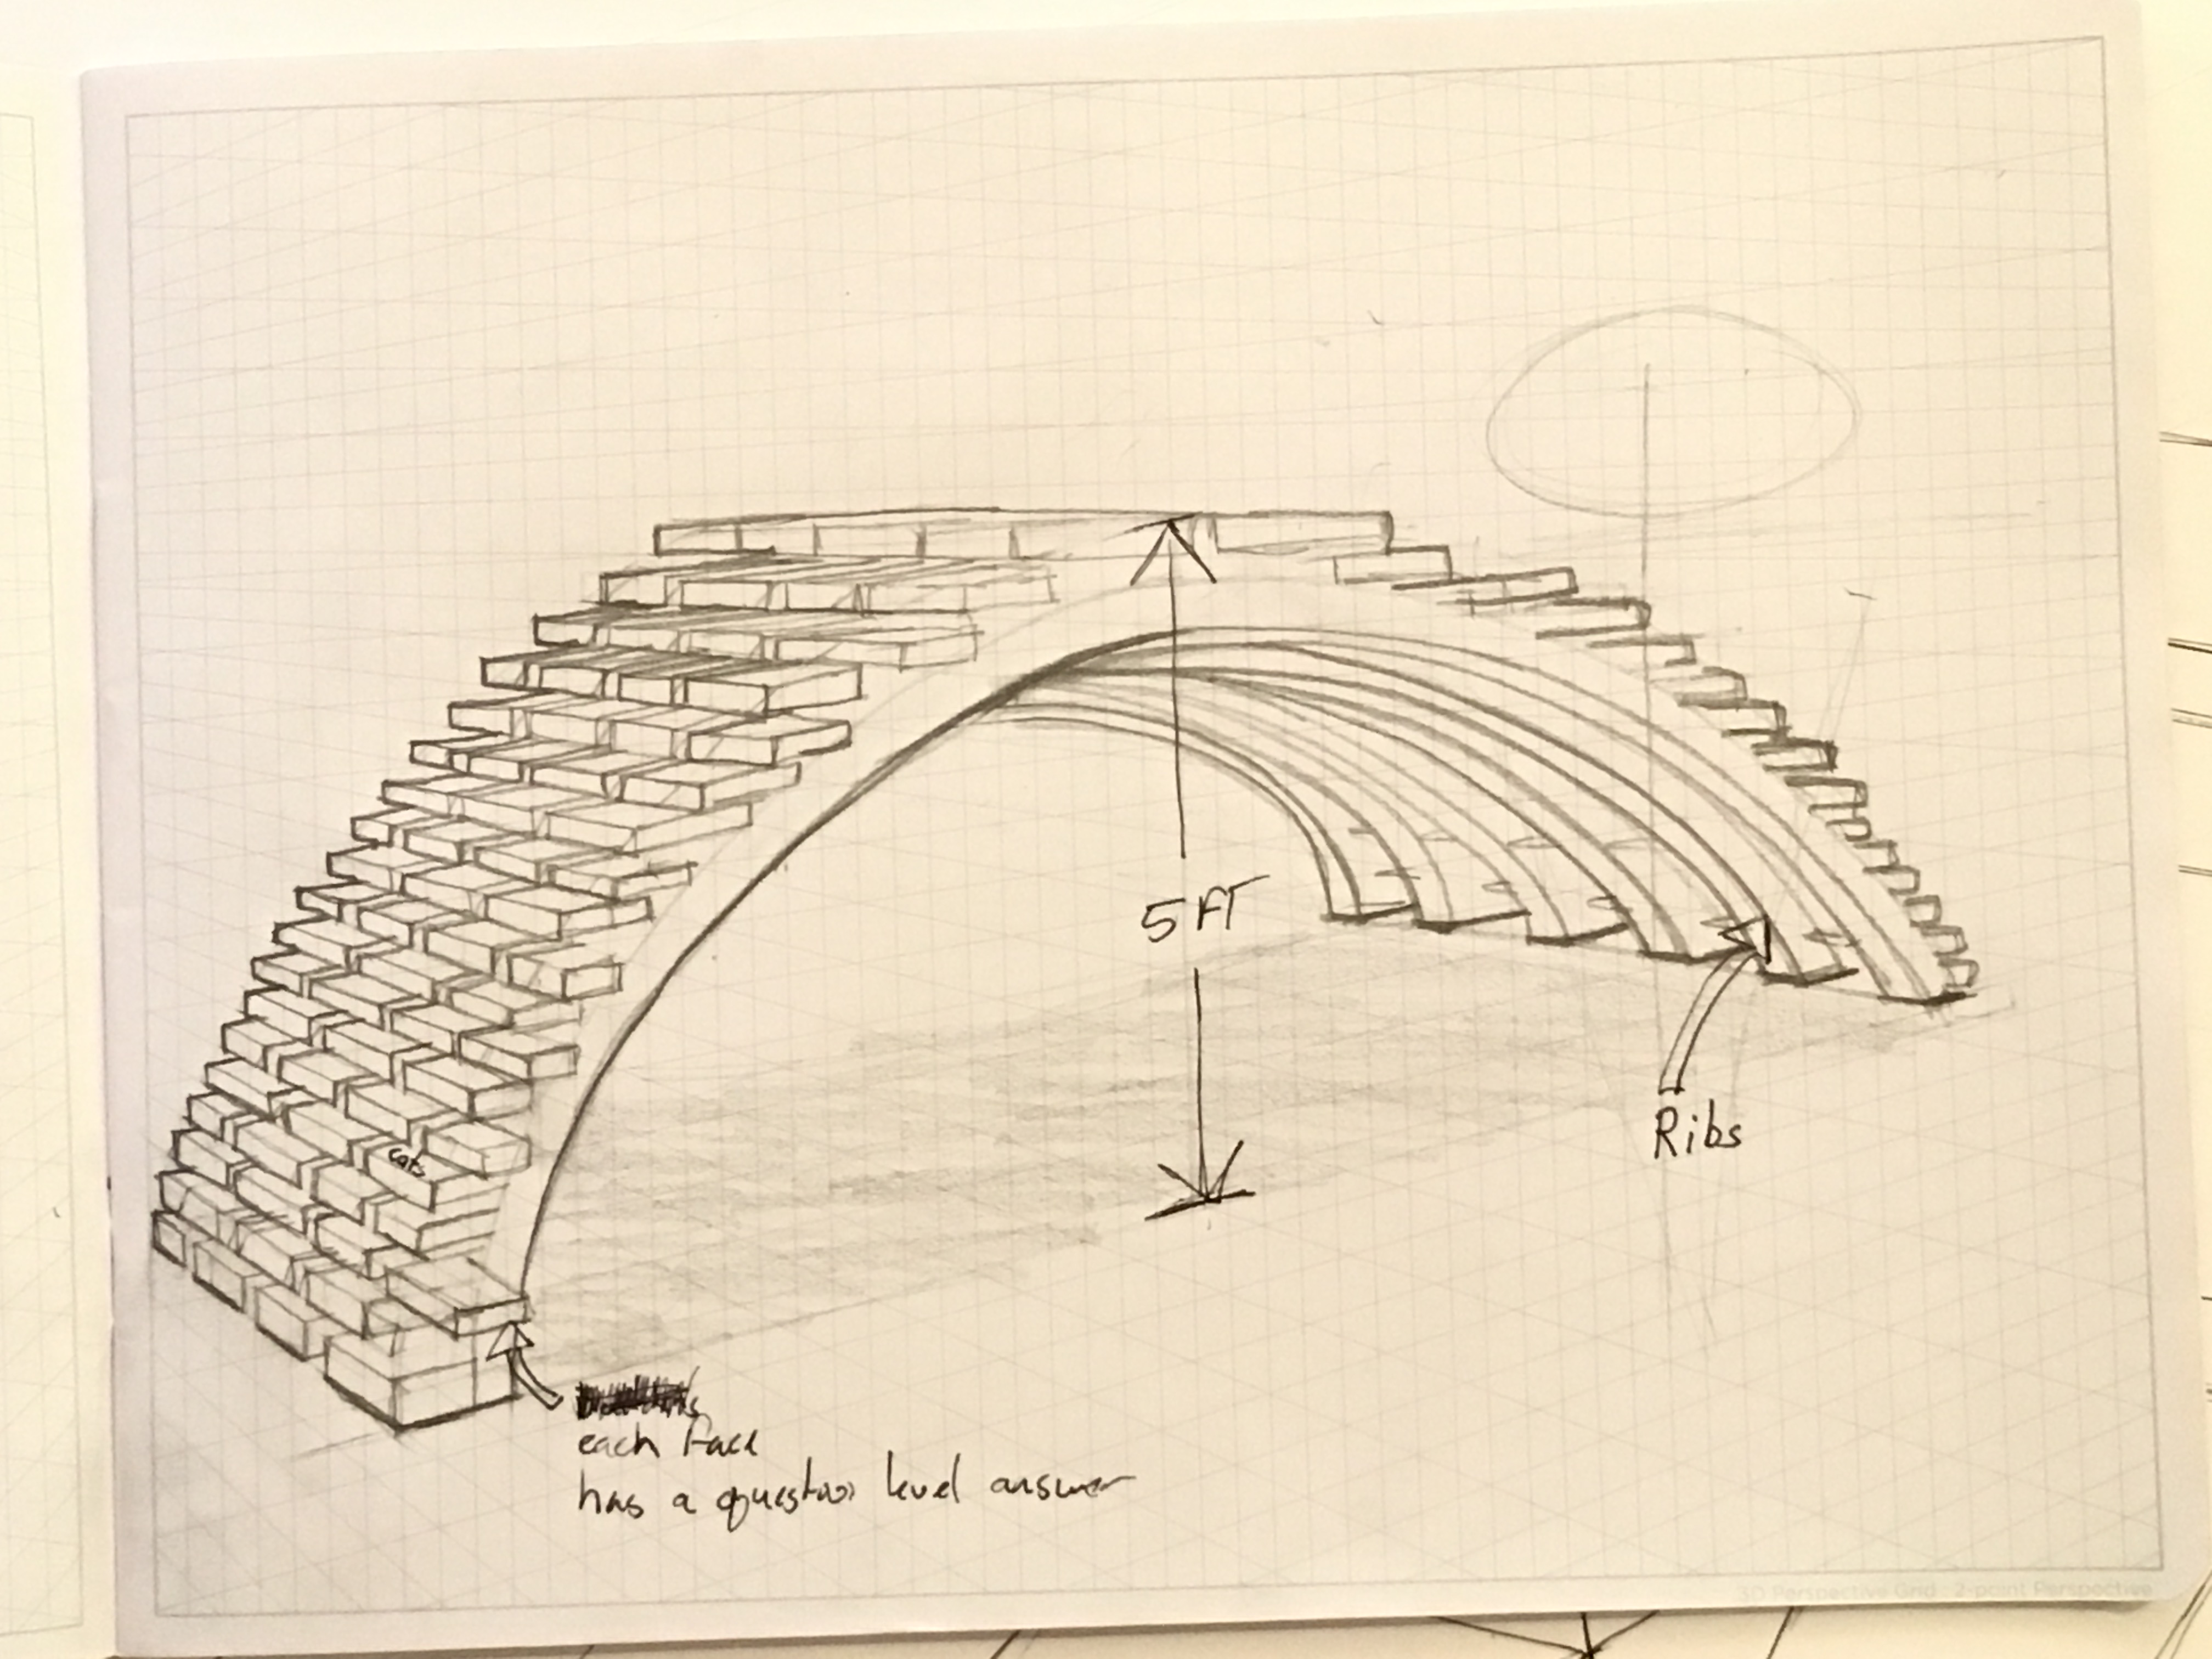 5 FT
Ribs
cats
each face
has a question level answer
3D Perspective Grid : 2-point Perspective